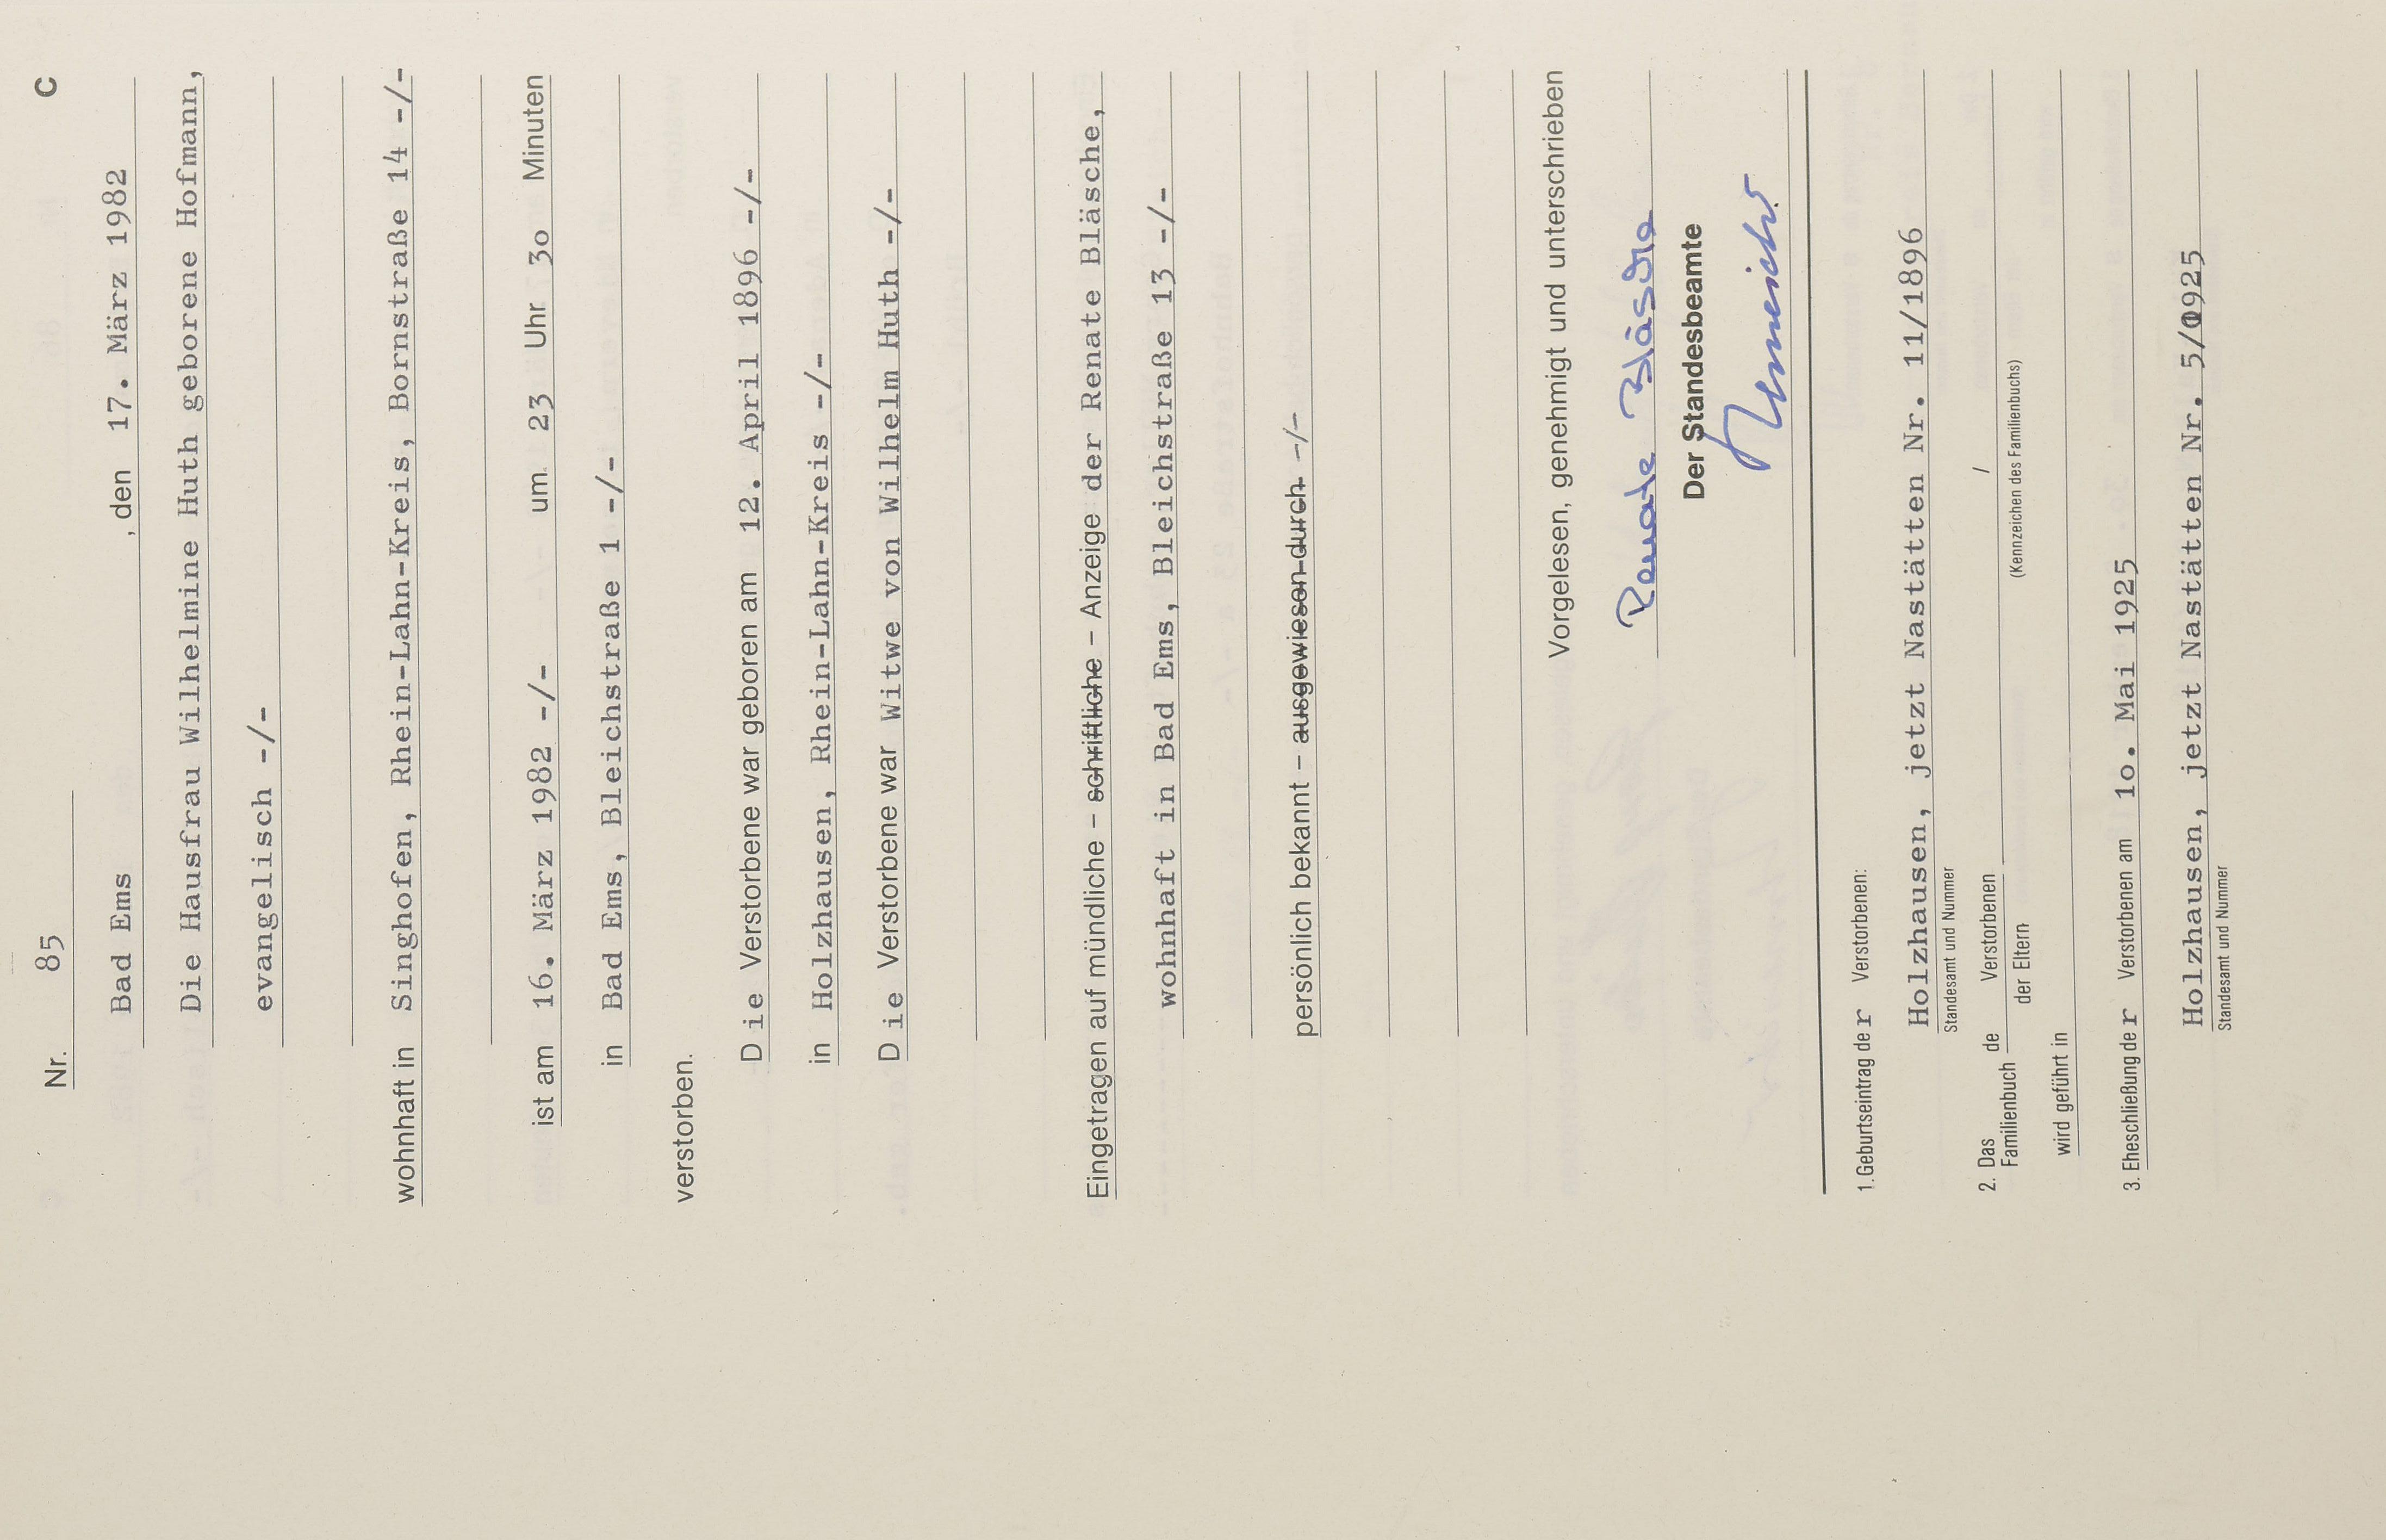 C
Nr. 85
Bad Ems, den 17. März 1982
Die Hausfrau Wilhelmine Huth geborene Hofmann,
evangelisch -/-
wohnhaft in Singhofen, Rhein-Lahn-Kreis, Bornstraße 14 -/-
ist am 16. März 1982 -/- um 23 Uhr 3o Minuten
in Bad Ems, Bleichstraße 1 -/-
verstorben.
Die Verstorbene war geboren am 12. April 1896 -/-
in Holzhausen, Rhein-Lahn-Kreis -/-
Die Verstorbene war Witwe von Wilhelm Huth -/-
Eingetragen auf mündliche – schriftliche – Anzeige der Renate Bläsche,
wohnhaft in Bad Ems, Bleichstraße 13 -/-
persönlich bekannt – ausgewiesen durch -/-
Vorgelesen, genehmigt und unterschrieben
Renate Bläsche
Der Standesbeamte
1. Geburtseintrag der Verstorbenen:
Holzhausen, jetzt Nastätten Nr. 11/1896
Standesamt und Nummer
2. Das Familienbuch de Verstorbenen /
der Eltern (Kennzeichen des Familienbuchs)
wird geführt in
3. Eheschließung der Verstorbenen am 1o. Mai 1925
Holzhausen, jetzt Nastätten Nr. 5/1925
Standesamt und Nummer